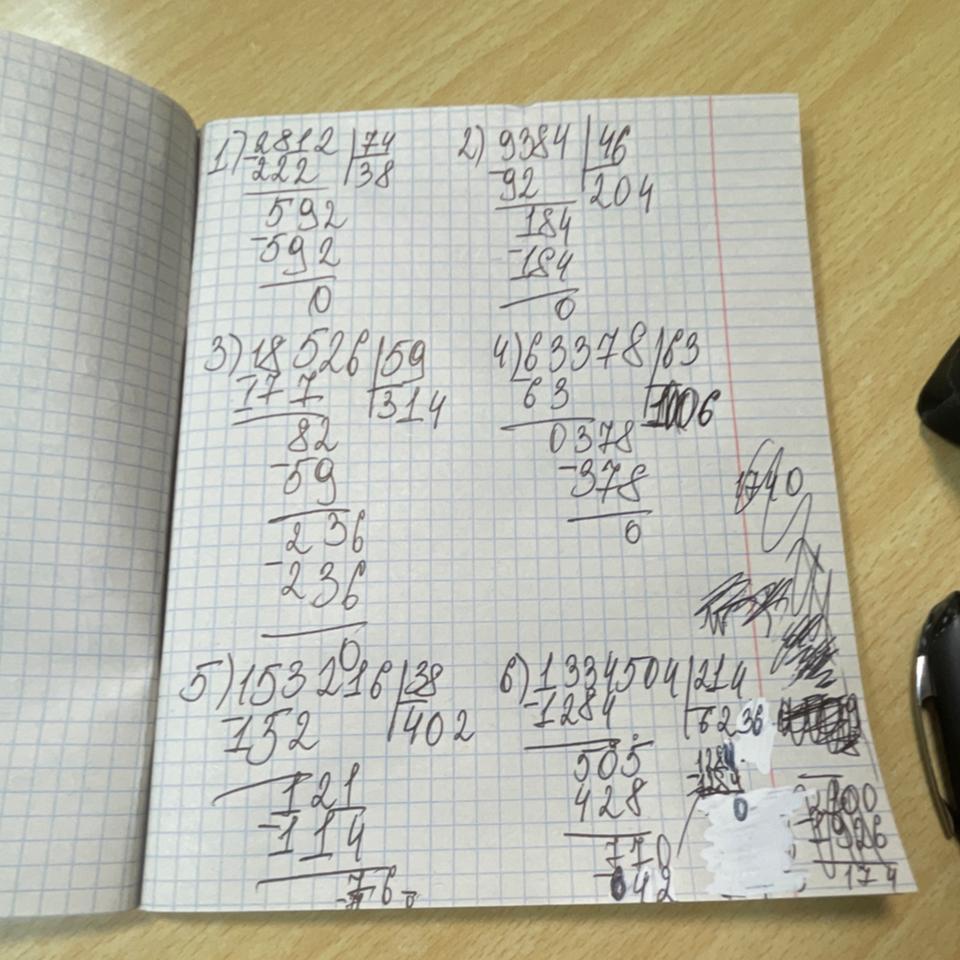 1) 2812 | 74
-222 | 38
592
-592
0
2) 9384 | 46
-92 | 204
184
-184
0
3) 18526 | 59
-177 | 314
82
-59
236
-236
0
4) 63378 | 63
63
0378
-378
0
1740
5) 153216 | 38
-152 | 402
121
-114
76
6) 1334504 | 214
-1284 | 6236
505
428
770
642
0
2700
-1926
174